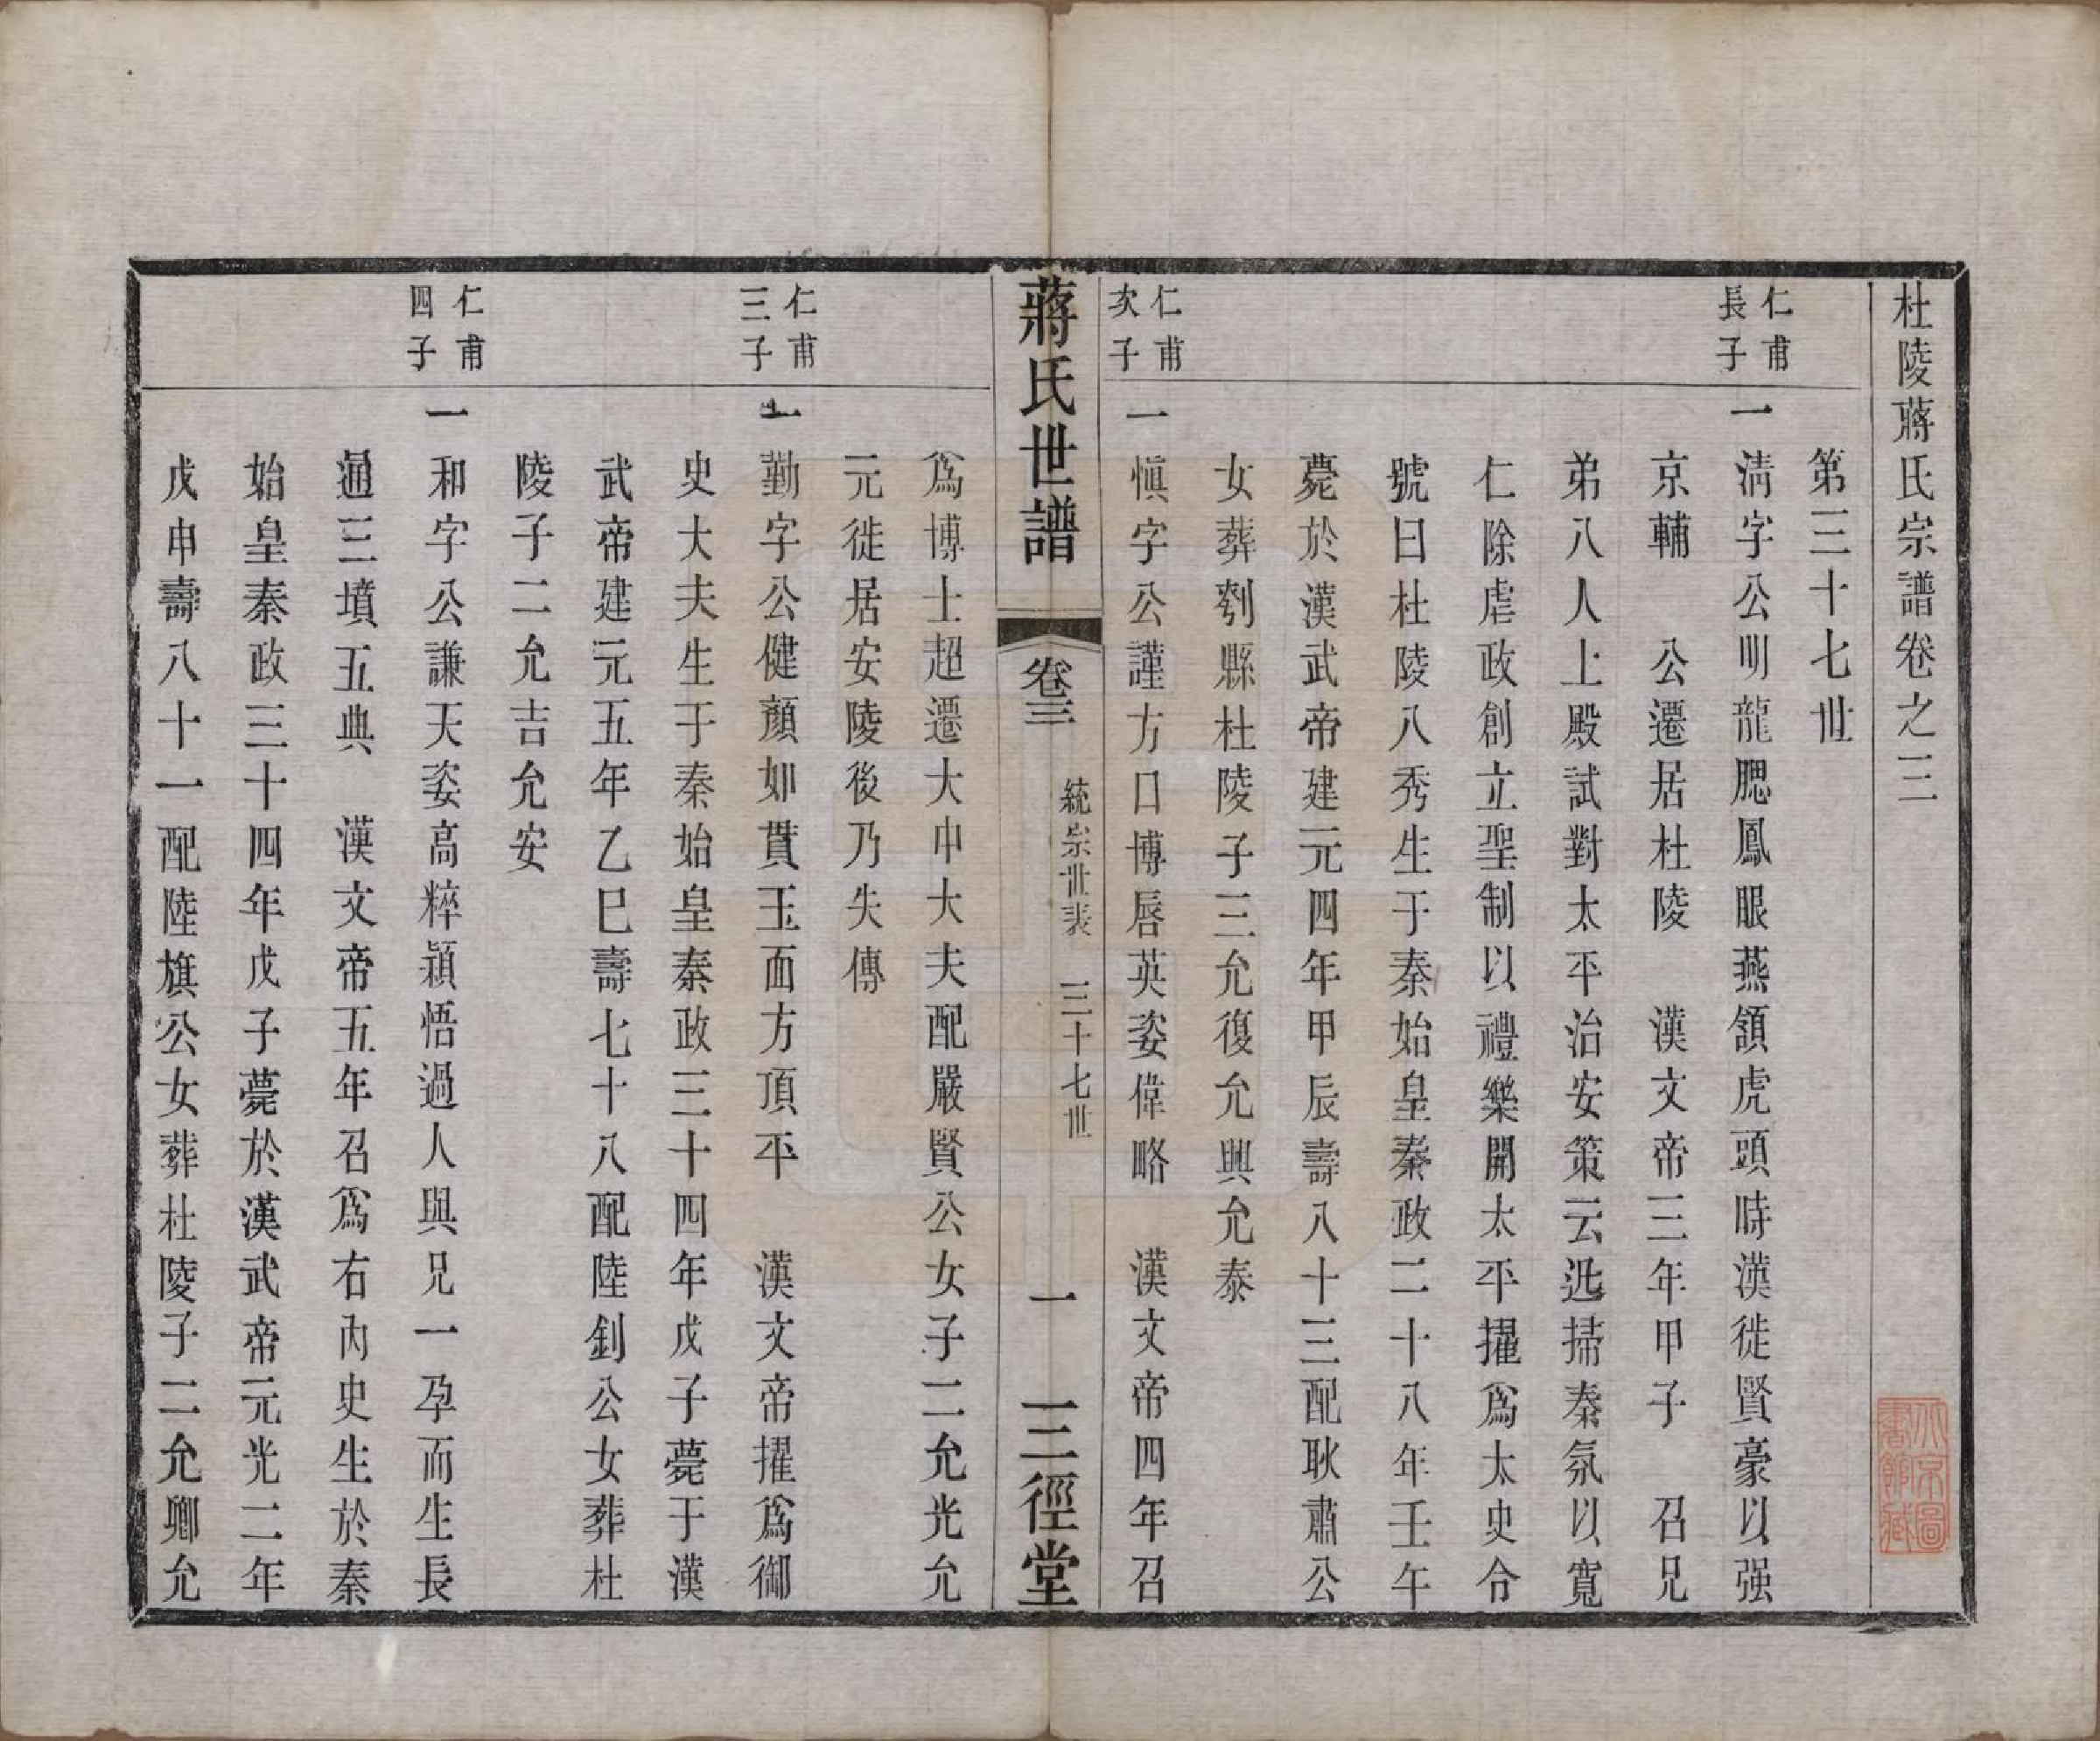 杜陵蔣氏宗譜卷之三
第三十七世
仁甫
長子
一清字公明龍腮鳳眼燕頷虎頭時漢徙賢豪以强
京輔　公遷居杜陵　漢文帝三年甲子　召兄
弟八人上殿試對太平治安策云迅掃秦氛以寬
仁除虐政創立聖制以禮樂開太平擢爲太史令
號曰杜陵八秀生于秦始皇秦政二十八年壬午
薨於漢武帝建元四年甲辰壽八十三配耿肅公
女葬剺縣杜陵子三允復允興允泰
仁甫
次子
一愼字公謹方口博唇英姿偉略　漢文帝四年召
蔣氏世譜
卷三
統宗世表　三十七世
一
三徑堂
爲博士超遷大中大夫配嚴賢公女子二允光允
元徙居安陵後乃失傳
仁甫
三子
一勤字公健顏如貫玉面方頂平　漢文帝擢爲御
史大夫生于秦始皇秦政三十四年戊子薨于漢
武帝建元五年乙巳壽七十八配陸釗公女葬杜
陵子二允吉允安
仁甫
四子
一和字公謙天姿高粹穎悟過人與兄一孕而生長
通三墳五典　漢文帝五年召爲右內史生於秦
始皇秦政三十四年戊子薨於漢武帝元光二年
戊申壽八十一配陸旗公女葬杜陵子二允卿允